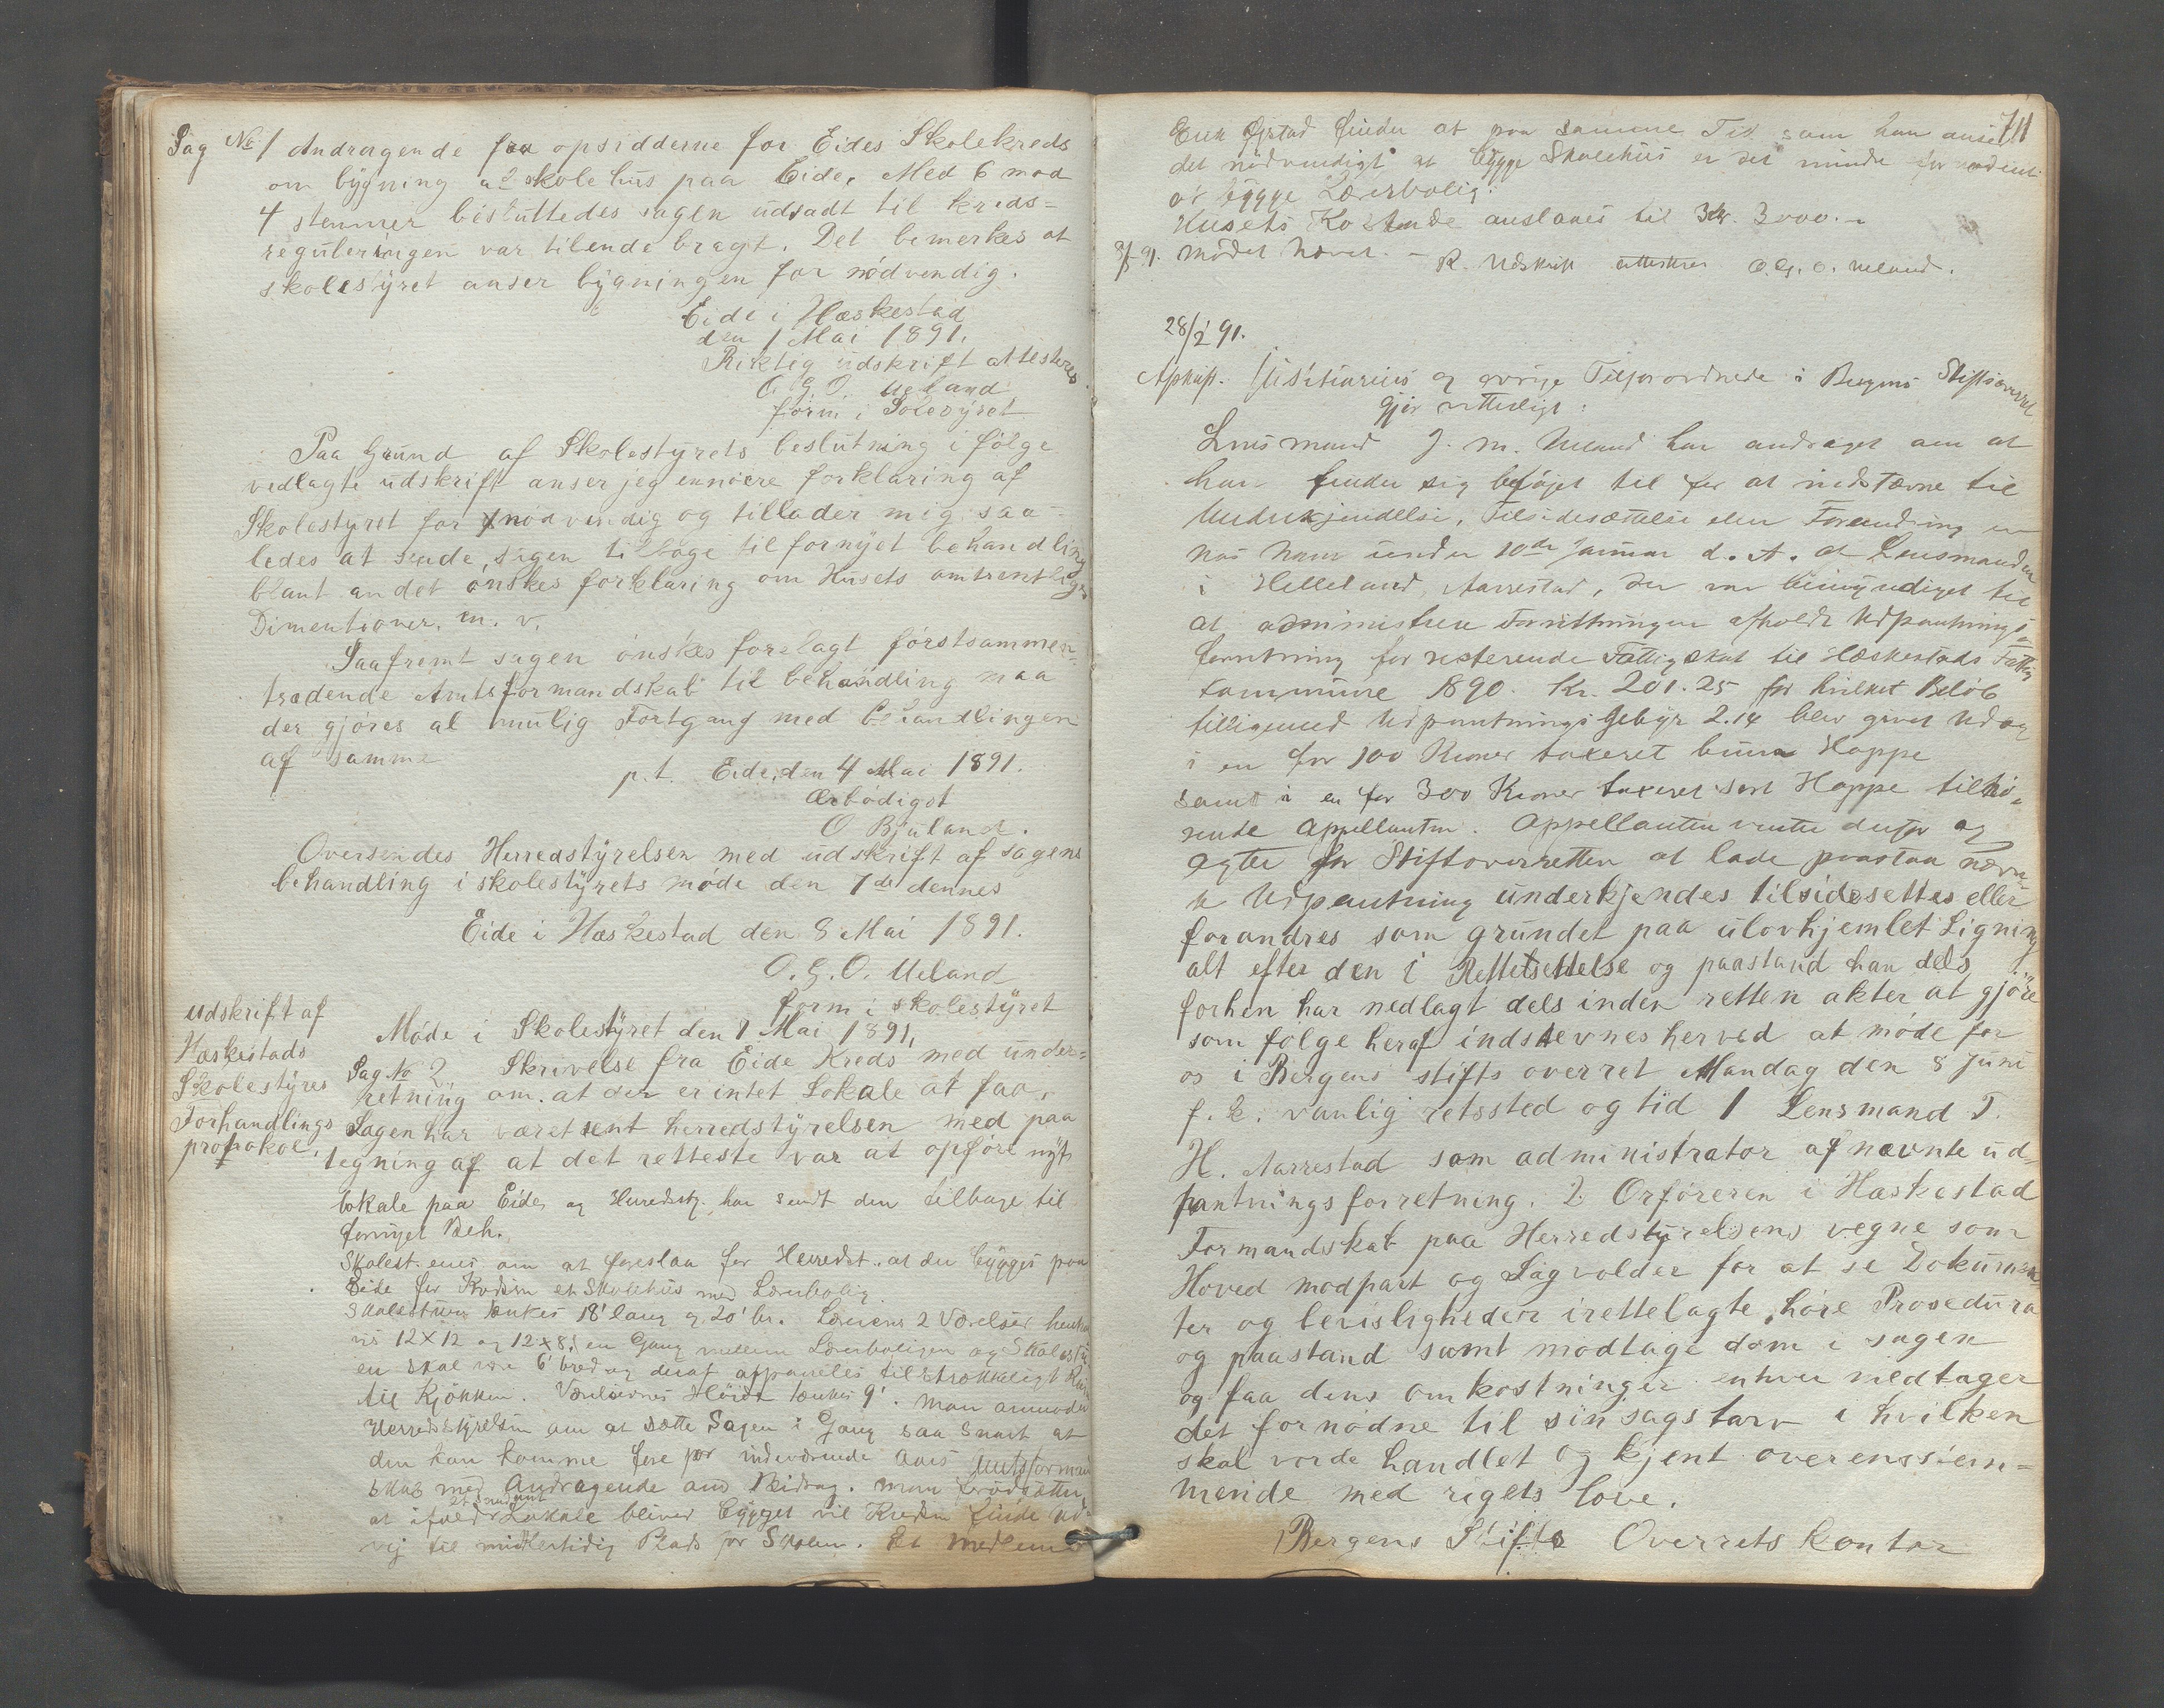 Sag No 1 Andragende fra opsidderne for Eides Skolekreds
om bygning af skolehus paa Eide. Med 6 mod
4 stemmer besluttedes sagen udsadt til kreds=
reguleringen var tilendebragt. Det bemerkes at
skolestyret anser bygningen for nödvendig.
Eide i Hæskestad
den 1 Mai 1891.
Riktig udskrift attesteres.
O. G. O. Ueland
form i Solestyret
Paa Grund af Skolestyrets beslutning i fölge
vedlagte udskrift anser jeg ennöiere forklaring af
Skolestyret for nödvendig og tillader mig saa-
ledes at sende sagen tilbage til fornyet behandling
blant andet önskes forklaring om Husets omtrentlige
Dimentioner. m. v.
Saafremt sagen önskes forelagt förstsammen-
trædende Amtsformandskab til behandling maa
der gjöres al mulig Fortgang med behandlingen
af samme
p. t. Eide, den 4 Mai 1891.
Ærbödigst
O Bjuland.
Oversendes Herredstyrelsen med udskrift af sagens
behandling i skolestyrets möde den 7de dennes
Eide i Hæskestad den 8 Mai 1891.
O. G. O. Ueland
form i skolestyret
udskrift af
Hæskestads
Skolestyres
Forhandlings
protokol.
Möde i Skolestyret den 7 Mai 1891,
Sag No 2 Skrivelse fra Eide Kreds med under=
retning om at der er intet Lokale at faa.
Sagen har været sent herredstyrelsen med paa
tegning af at det retteste var at opföre nyt
lokale paa Eide, og Herredsst. har sendt den tilbage til
fornyet Beh.
Skolest. enes om at foreslaa for Herredst. at der bygges paa
Eide for Kredsen et Skolehus med Lærerbolig.
Skolestuen tænkes 18' lang og 20' br. Lærerens 2 Værelser
12 X 12 og 12 X 8, en Gang mellem Lærerboligen og
en skal være 6' bred og deraf afpaneles tilstrækkeligt
til Kjökken. Værelsernes Höide tænkes 9'. Man anmoder
Herredsstyrelsen om at sætte Sagen i Gang saa snart at
den kan komme fore for indeværende Aars Amtsforman
skab med Andragende om Bidrag. Man forudsætter,
at ifald et saadant Lokale bliver bygget vil Kredsen finde ud-
vej til midlertidig Plads for Skolen. Et medlem
711
Erik Ørstad finder at paa samme Tid som han anser
det nödvendigt at bygge Skolehus er det mindre
at bygge Lærerbolig.
Husets Kostende anslaaes til Kr. 3000.-
91. Mödet hævet. - R. Udskrift attesteres O. G. O. Ueland.
28/2 91.
Afskrift. Justitiarius og övrige Tilforordnede i Bergens Stiftsoverret
Gjör vitterligt:
Lensmand J. M. Ueland har andraget om at
han finder sig beföjet til for at indstævne til
Underkjendelse, Tilsidesættelse eller Forandring en
hos ham under 10de Januar d. A. af Lensmanden
i Helleland, Aarrestad, der var bemyndiget til
at administrere Forretningen afholdt Udpantnings
forretning for resterende Fattigskat til Hæskestads Fattig
kommune 1890. Kr. 201.25 for hvilket Belöb
tilligemed Udpantningsgebyr 2.14 blev givet Udlæg
i en for 100 Kroner taxeret brun Hoppe
samt i en for 300 Kroner taxeret sort Hoppe tilhö-
rende Appellanten. Appellanten venter derfor og
agter for Stiftsoverretten at lade paastaa nævn-
te Udpantning underkjendes tilsidesettes eller
forandres som grundet paa ulovhjemlet Ligning
alt efter den i Rettesettelse og paastand han dels
forhen har nedlagt dels inden retten akter at gjöre
som fölge heraf indstevnes herved at möde for
os i Bergens stifts overret Mandag den 8 juni
f. k. vanlig retssted og tid 1 Lensmand T.
H. Aarrestad som administrator af nævnte ud-
pantningsforretning. 2 Orföreren i Hæskestad
Formandskab paa Herredstyrelsens vegne som
Hoved modpart og Sagvolder for at se Dokumen-
ter og bevisligheder irettelagte, höre Prosedura
og paastand samt modtage dom i sagen
og faa dens omkostninger enhver nedtager
det fornödne til sin sags tarv i hvilken
skal vorde handlet og kjent overensstem=
mende med rigets love.
Bergens Stifts Overrets kontor